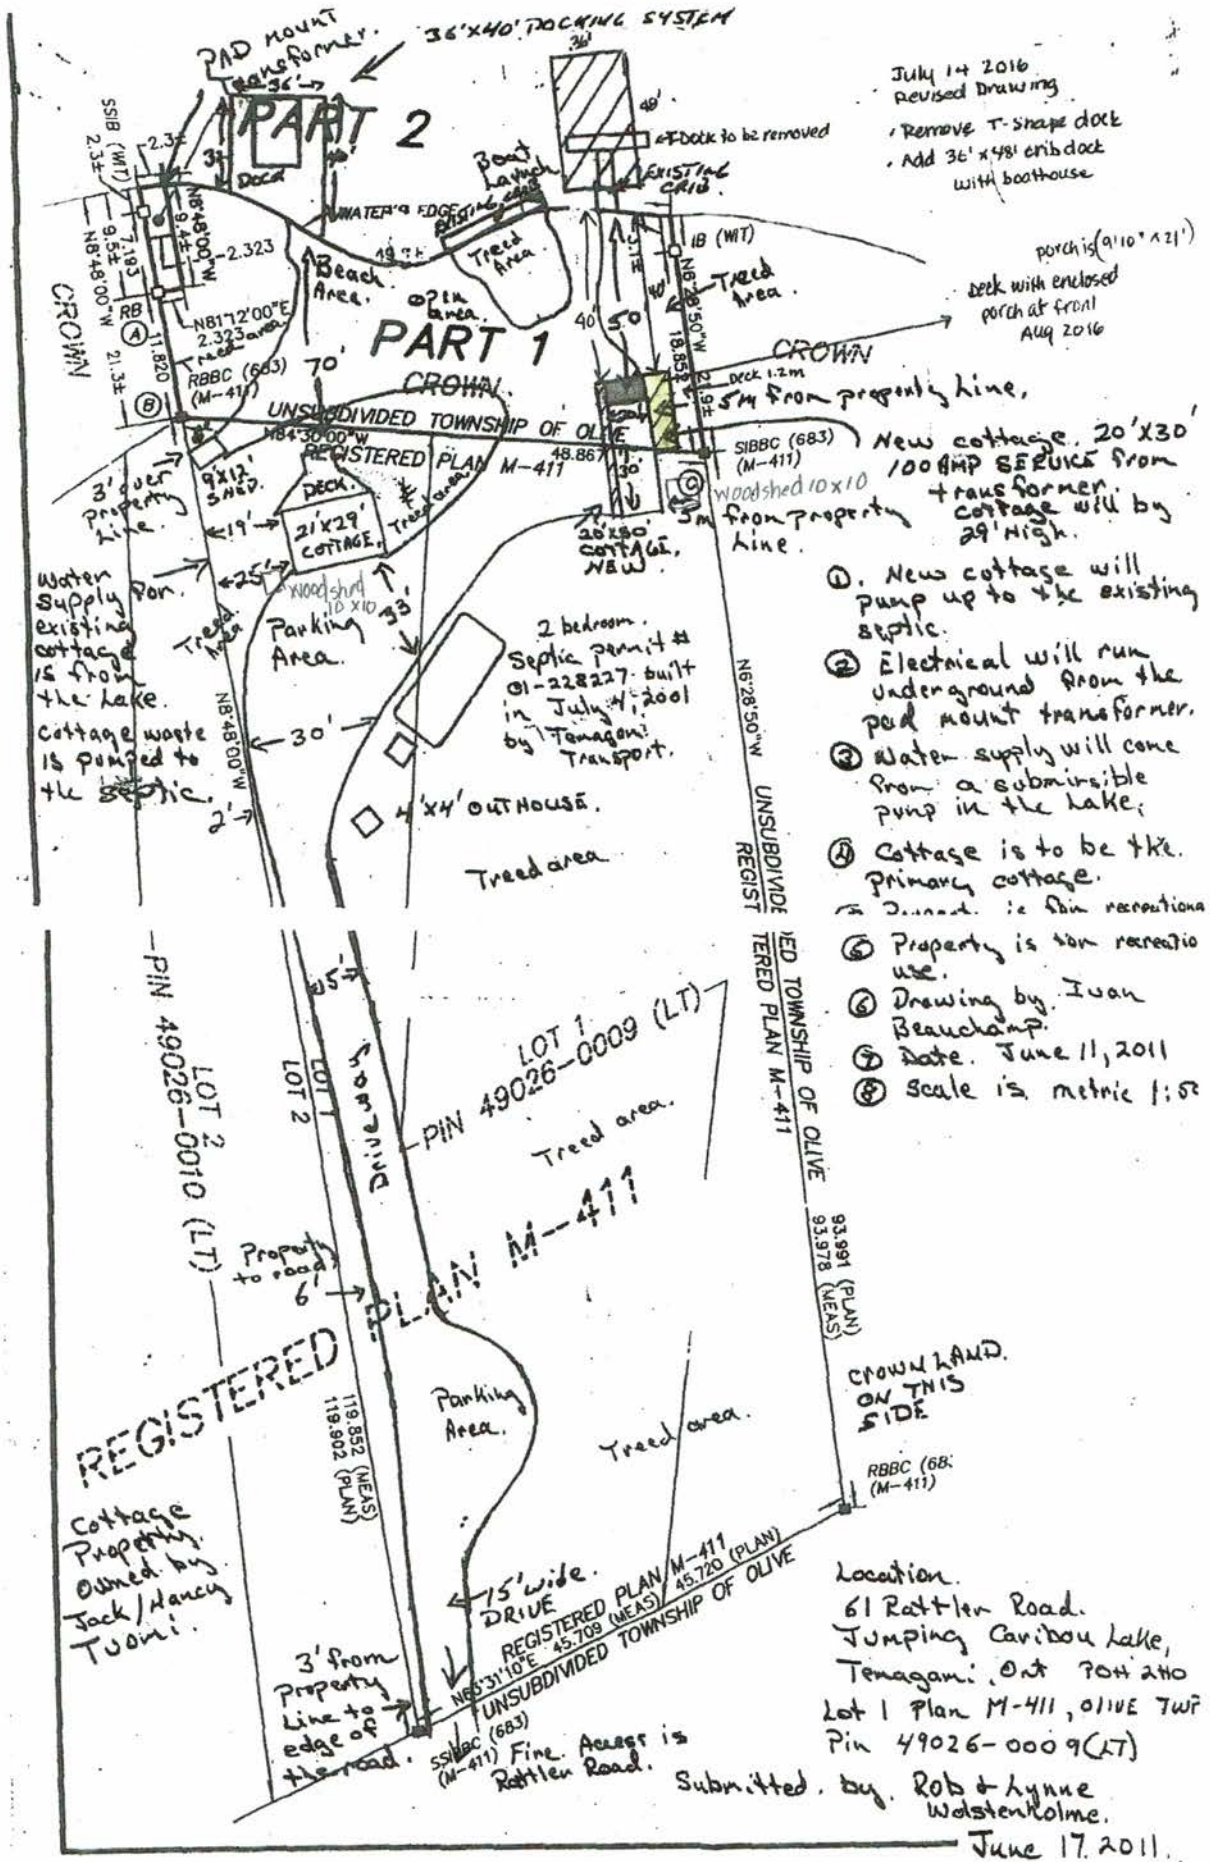 PAD MOUNT
transformer.
36'X40' DOCKING SYSTEM
36'
36'
PART 2
Dock
48'
Dock to be removed
EXISTING
CRIB
Boat
Launch
WATER'S EDGE
July 14 2016
Revised Drawing
• Remove T-shape dock
• Add 36' x 48' crib dock
with boathouse
porch is (9'10" x 21')
Deck with enclosed
porch at front
Aug 2016
SSIB (WIT)
2.3±
2.3±
N8°48'00"W
9.4±
7.193
9.5±
N8°48'00"W
2.323
N81°12'00"E
2.323
Treed area
RB
A
11.820
21.3±
B
RBBC (683)
(M-411)
CROWN
Beach
Area.
Open
area.
Treed
Area
PART 1
CROWN
70'
40'
50'
40'
IB (WIT)
N6°28'50"W
18.852
21.9±
Treed
Area.
CROWN
Deck 1.2m
5m from property Line.
UNSUBDIVIDED TOWNSHIP OF OLIVE
N84°30'00"W
48.867
REGISTERED PLAN M-411
SIBBC (683)
(M-411)
C
woodshed 10x10
5m
from property
Line.
20'X30'
COTTAGE.
NEW
30'
New cottage. 20'X30'
100 AMP SERVICE from
transformer.
cottage will by
29' High.
3' over
Property
Line.
9X12'
SHED.
DECK.
21'X29'
COTTAGE.
Treed area
19'
25'
woodshed
10 x10
33'
Parking
Area.
Treed
Area
Water
Supply for
existing
cottage
is from
the Lake.
Cottage waste
is pumped to
the septic.
N8°48'00"W
30'
2'
2 bedroom.
Septic permit #
01-228227 built
in July 4, 2001
by Temagami
Transport.
4'X4' OUTHOUSE.
Treed area
N6°28'50"W
UNSUBDIVIDED TOWNSHIP OF OLIVE
REGISTERED PLAN M-411
①. New cottage will
pump up to the existing
septic.
② Electrical will run
underground from the
pad mount transformer.
③ Water supply will come
from a submirsible
pump in the Lake.
④ Cottage is to be the
primary cottage.
⑤ Property is for recreatio
use.
⑥ Drawing by Ivan
Beauchamp.
⑦ Date. June 11, 2011
⑧ Scale is metric 1:50
PIN 49026-0010 (LT)
LOT 2
LOT 1
LOT 2
15'
Driveway
LOT 1
PIN 49026-0009 (LT)
Treed area.
REGISTERED PLAN M-411
Property
to road
6'
119.852 (MEAS)
119.902 (PLAN)
Parking
Area.
Treed area.
93.991 (PLAN)
93.978 (MEAS)
CROWN LAND
ON THIS
SIDE
RBBC (68
(M-411)
Cottage
Property
Owned by
Jack/Nancy
Tuomi.
15' wide.
DRIVE
REGISTERED PLAN M-411
N63°31'10"E 45.709 (MEAS) 45.720 (PLAN)
UNSUBDIVIDED TOWNSHIP OF OLIVE
3' from
Property
Line to
edge of
the road.
SSIBBC (683)
(M-411)
Fire Access is
Rattler Road.
Location.
61 Rattler Road.
Jumping Caribou Lake,
Temagami, Ont P0H 2H0
Lot 1 Plan M-411, OLIVE TWP
Pin 49026-0009(LT)
Submitted by Rob & Lynne
Wolstenholme.
June 17. 2011.